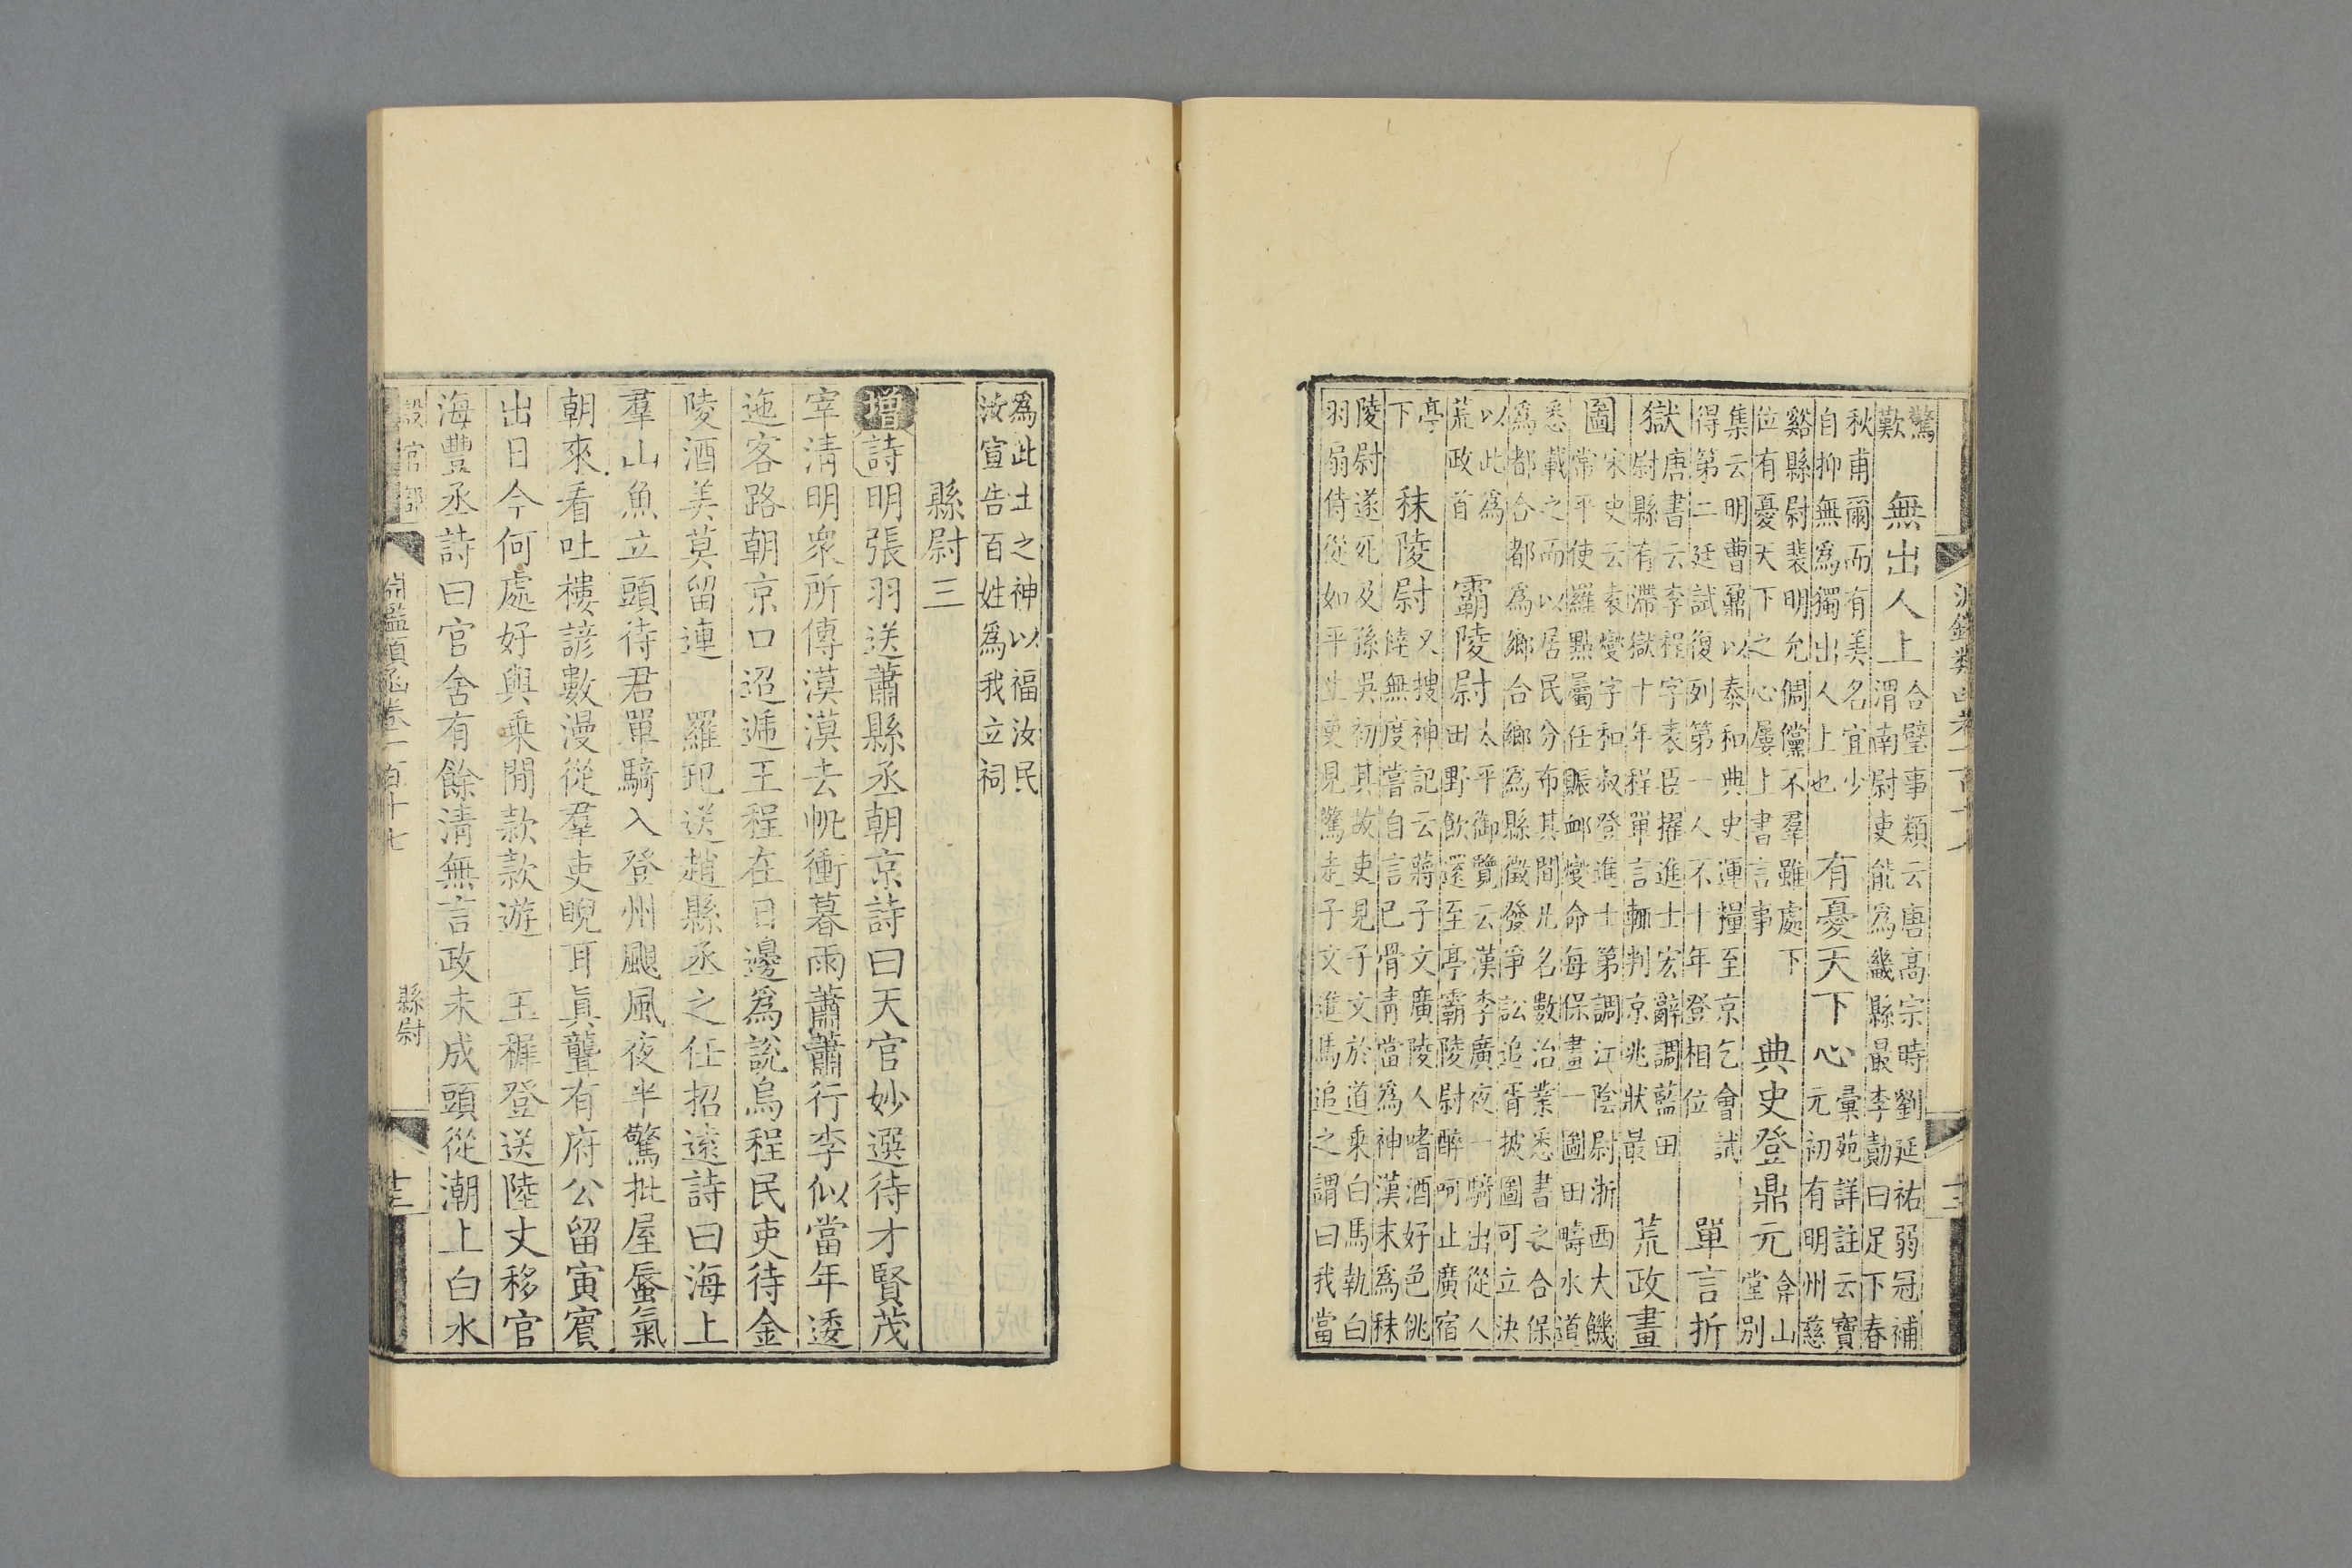 驚
歎
無出人上
合璧事類云唐高宗時劉延祐弱冠補
渭南尉吏能爲畿縣最李勣曰足下春
秋甫爾而有美名宜少
自抑無爲獨出人上也
有憂天下心
彙苑詳註云寶
元初有明州慈
谿縣尉裴明允倜儻不羣雖處下
位有憂天下之心屢上書言事
典史登鼎元
弇山
堂別
集云明曹鼐以泰和典史運糧至京乞會試
得第二廷試復列第一人不十年登相位
單言折
獄
唐書云李程字表臣擢進士宏辭調藍田
尉縣有滯獄十年程單言輒判京兆狀最
荒政畫
圖
宋史云袁燮字和叔登進士第調江陰尉浙西大饑
常平使羅點屬任賑卹燮命每保畫一圖田疇水道
悉載之而以居民分布其間凡名數治業悉書之合保
爲都合都爲鄉合鄉爲縣徵發爭訟追胥披圖可立決
以此爲
荒政首
霸陵尉
太平御覽云漢李廣夜一騎出從人
田野飲還至亭霸陵尉醉呵止廣宿
亭
下
秣陵尉
又搜神記云蔣子文廣陵人嗜酒好色佻
無度嘗自言己骨靑當爲神漢末爲秣
陵尉遂死及孫吳初其故吏見子文於道乘白馬執白
羽扇侍從如平生吏見驚走子文進馬追之謂曰我當
爲此土之神以福汝民
汝宣告百姓爲我立祠
縣尉三
增詩明張羽送蕭縣丞朝京詩曰天官妙選待才賢茂
宰清明衆所傳漠漠去帆衝暮雨蕭蕭行李似當年逶
迤客路朝京口迢遞王程在日邊爲說烏程民吏待金
陵酒美莫留連 羅玘送趙縣丞之任招遠詩曰海上
羣山魚立頭待君單騎入登州颶風夜半驚批屋蜃氣
朝來看吐樓諺數漫從羣吏睨耳眞聾有府公留寅賓
出日今何處好與乘閒款款遊 王穉登送陸丈移官
海豐丞詩曰官舍有餘清無言政未成頭從潮上白水
設官部 淵鑑類函卷一百十七 縣尉 十三